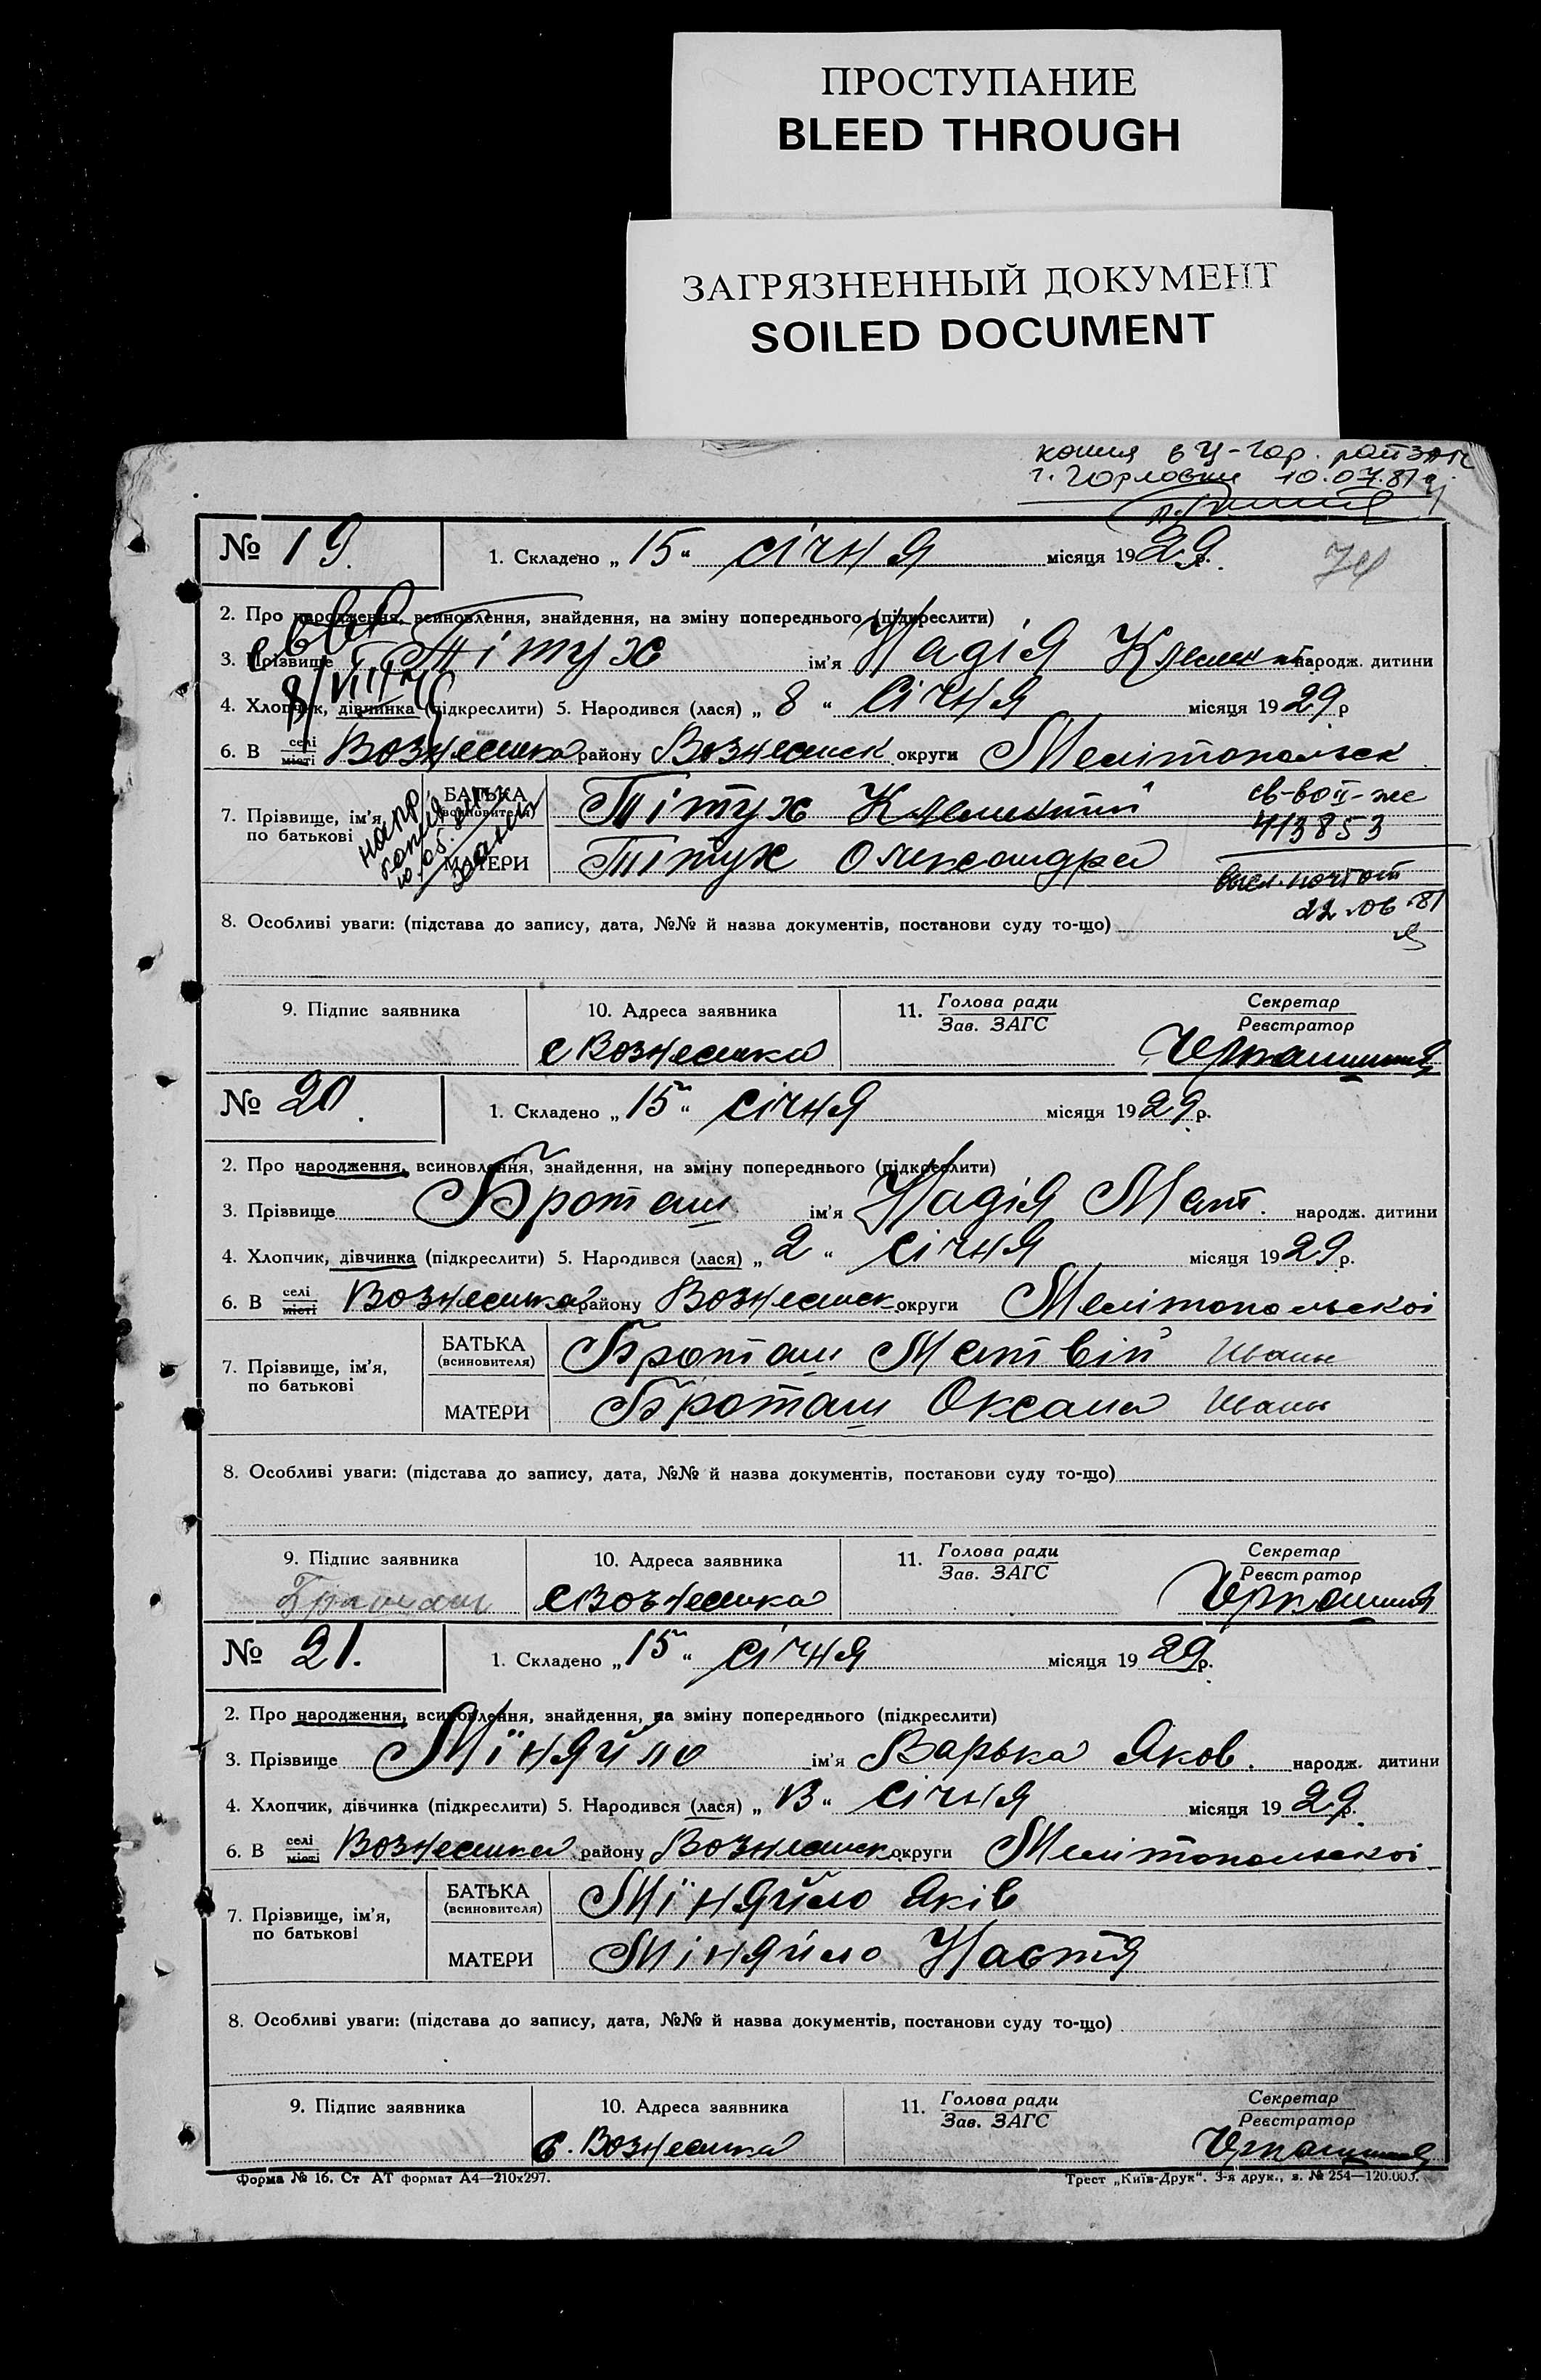 ПРОСТУПАНИЕ
BLEED THROUGH
ЗАГРЯЗНЕННЫЙ ДОКУМЕНТ
SOILED DOCUMENT
копия в Ц-Гор. райЗАГС
г. Горловки 10.07.81
№ 19. 1. Складено „15“ січня місяця 1929 р.
74
2. Про народження, всиновлення, знайдення, на зміну попереднього (підкреслити)
3. Прізвище Тітух ім'я Надія народж. дитини
4. Хлопчик, дівчинка (підкреслити) 5. Народився (лася) „8“ січня місяця 1929 р
6. В селі місті Вознесенка району Вознесенск округи Мелітопольск
7. Прізвище, ім'я, по батькові
БАТЬКА (всиновителя) Тітух
МАТЕРИ Тітух Олександра
св-во II-же
413853
выс. почтой
22.06.81
8. Особливі уваги: (підстава до запису, дата, №№ й назва документів, постанови суду то-що)
9. Підпис заявника 10. Адреса заявника 11. Голова ради Зав. ЗАГС Секретар Реєстратор
с Вознесенка
№ 20. 1. Складено „15“ січня місяця 1929 р.
2. Про народження, всиновлення, знайдення, на зміну попереднього (підкреслити)
3. Прізвище Броташ ім'я Надія Мат. народж. дитини
4. Хлопчик, дівчинка (підкреслити) 5. Народився (лася) „2“ січня місяця 1929 р.
6. В селі місті Вознесенка району Вознесенск округи Мелітопольскоі
7. Прізвище, ім'я, по батькові
БАТЬКА (всиновителя) Броташ Матвій Иваны
МАТЕРИ Броташ Оксана Иваны
8. Особливі уваги: (підстава до запису, дата, №№ й назва документів, постанови суду то-що)
9. Підпис заявника 10. Адреса заявника 11. Голова ради Зав. ЗАГС Секретар Реєстратор
Броташ с Вознесенка
№ 21. 1. Складено „15“ січня місяця 1929 р.
2. Про народження, всиновлення, знайдення, на зміну попереднього (підкреслити)
3. Прізвище Міняйло ім'я Варька Яков. народж. дитини
4. Хлопчик, дівчинка (підкреслити) 5. Народився (лася) „13“ січня місяця 1929 р.
6. В селі місті Вознесенка району Вознесенск округи Мелітопольскоі
7. Прізвище, ім'я, по батькові
БАТЬКА (всиновителя) Міняйло Яків
МАТЕРИ Міняйло Настя
8. Особливі уваги: (підстава до запису, дата, №№ й назва документів, постанови суду то-що)
9. Підпис заявника 10. Адреса заявника 11. Голова ради Зав. ЗАГС Секретар Реєстратор
с. Вознесенка
Форма № 16. Ст АТ формат А4—210х297. Трест „Київ-Друк“. 3-я друк., з. № 254—120.000.